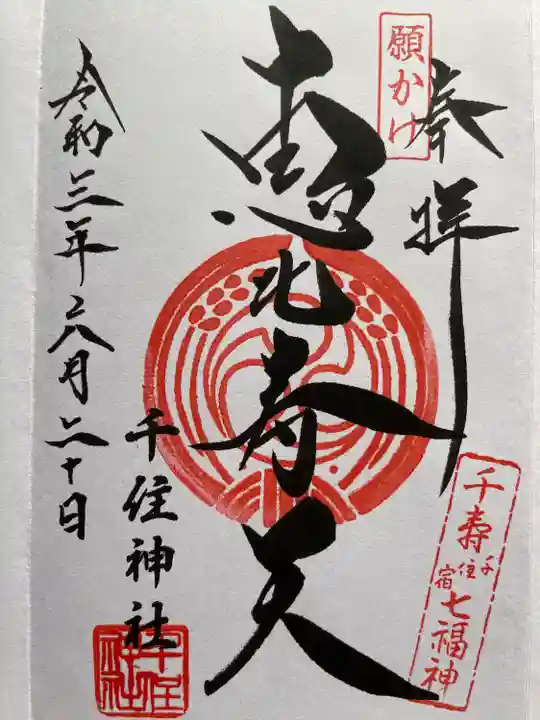 奉拝
願かけ
千寿
千住
宿
七福神
恵比寿天
千住神社
千住
社
令和三年六月二十日